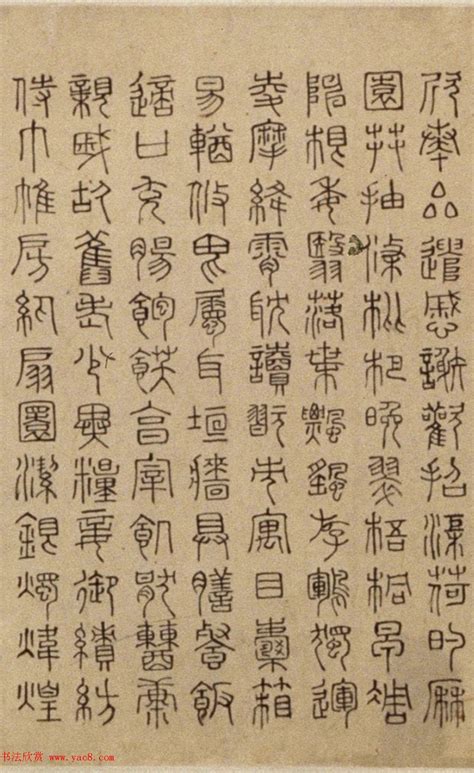 欣奏累遣慼謝歡招渠荷的歷
園莽抽條枇杷晚翠梧桐早凋
陳根委翳落葉飄颻游鵾獨運
凌摩絳霄耽讀翫市寓目囊箱
易輶攸畏屬耳垣牆具膳餐飯
適口充腸飽飫烹宰飢厭糟糠
親戚故舊老少異糧妾御績紡
侍巾帷房紈扇圓潔銀燭煒煌
书法欣赏 www.yac8.com